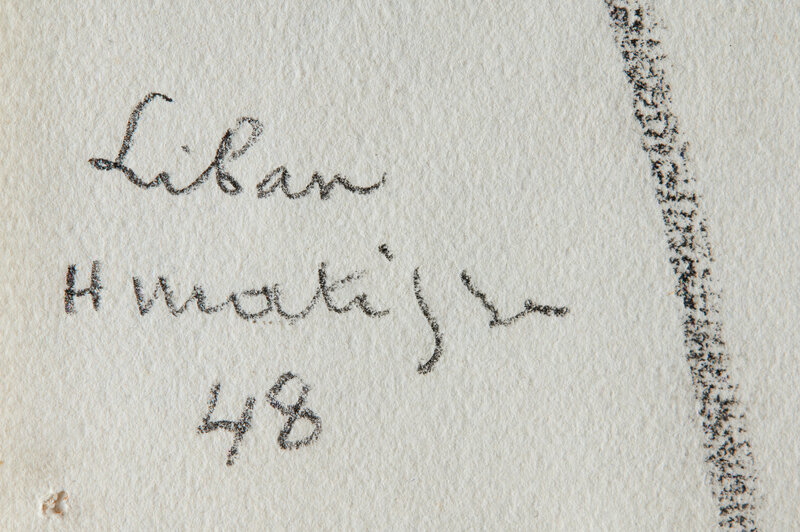 Liban
H Matisse
48